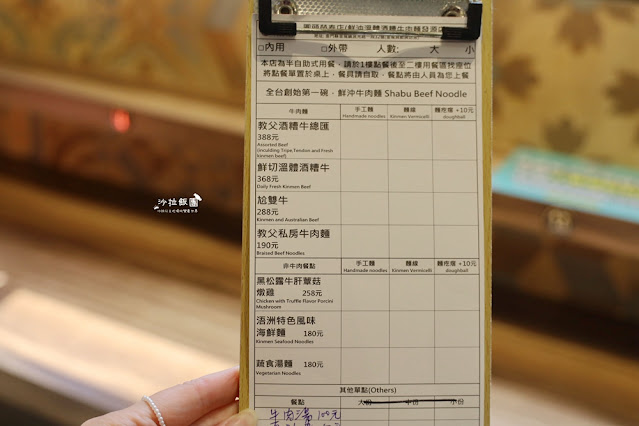 □內用 □外帶 人數: 大 小
本店為半自助式用餐，請於1樓點餐後至二樓用餐區找座位
將點餐單置於桌上，餐具請自取，餐點將由人員為您上餐
全台創始第一碗．鮮沖牛肉麵 Shabu Beef Noodle
牛肉麵 手工麵 麵線 麵疙瘩 +10元
Handmade noodles Kinmen Vermicelli doughball
教父酒糟牛總匯
388元
Assorted Beef
(including Tripe,Tendon and Fresh
kinmen beef)
鮮切溫體酒糟牛
368元
Daily Fresh Kinmen Beef
尬雙牛
288元
Kinmen and Australian Beef
教父私房牛肉麵
190元
Braised Beef Noodles
非牛肉餐點 手工麵 麵線 麵疙瘩 +10元
Handmade noodles Kinmen Vermicelli doughball
黑松露牛肝蕈菇
燉雞 258元
Chicken with Truffle Flavor Porcini
Mushroom
浯洲特色風味
海鮮麵 180元
Kinmen Seafood Noodles
蔬食湯麵 180元
Vegetarian Noodles
其他單點(Others)
餐點 大份 中份 小份
牛肉湯 100元
沙拉飯團